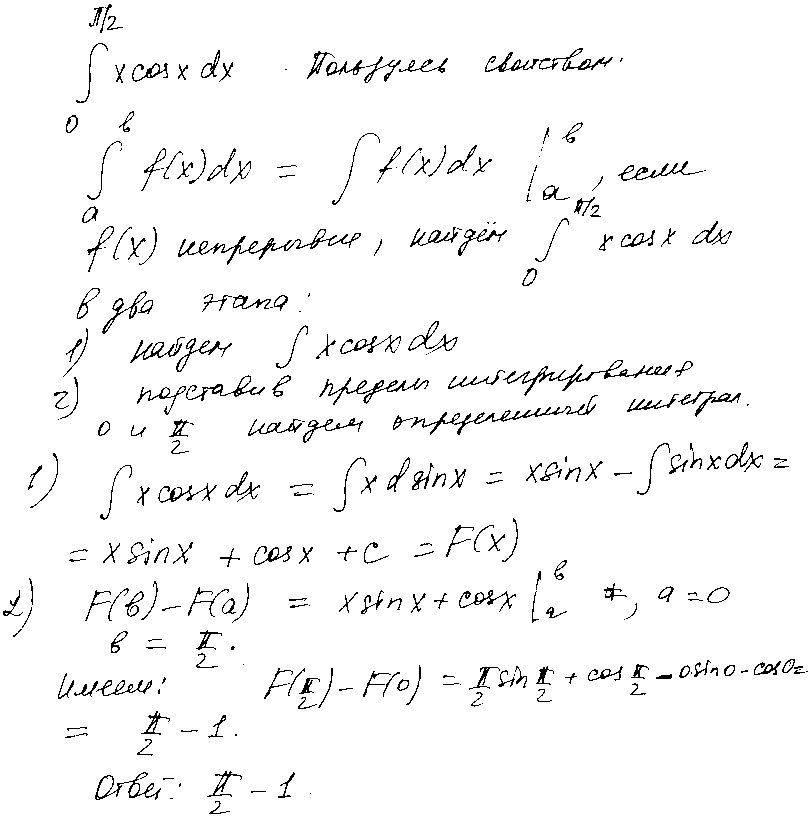 ∫₀^{π/2} x cos x dx. Пользуясь свойством.
∫ₐᵇ f(x)dx = ∫ f(x)dx |ₐᵇ, если
f(x) непрерывна, найдём ∫₀^{π/2} x cos x dx
в два этапа:
1) найдем ∫ x cos x dx
2) подставив пределы интегрирования
0 и π/2 найдем определенный интеграл.
1) ∫ x cos x dx = ∫ x d sin x = x sin x − ∫ sin x dx =
= x sin x + cos x + c = F(x)
2) F(в) − F(a) = x sin x + cos x |ₐᵇ, a = 0
в = π/2.
Имеем: F(π/2) − F(0) = π/2 sin π/2 + cos π/2 − 0 sin 0 − cos 0 =
= π/2 − 1.
Ответ: π/2 − 1.